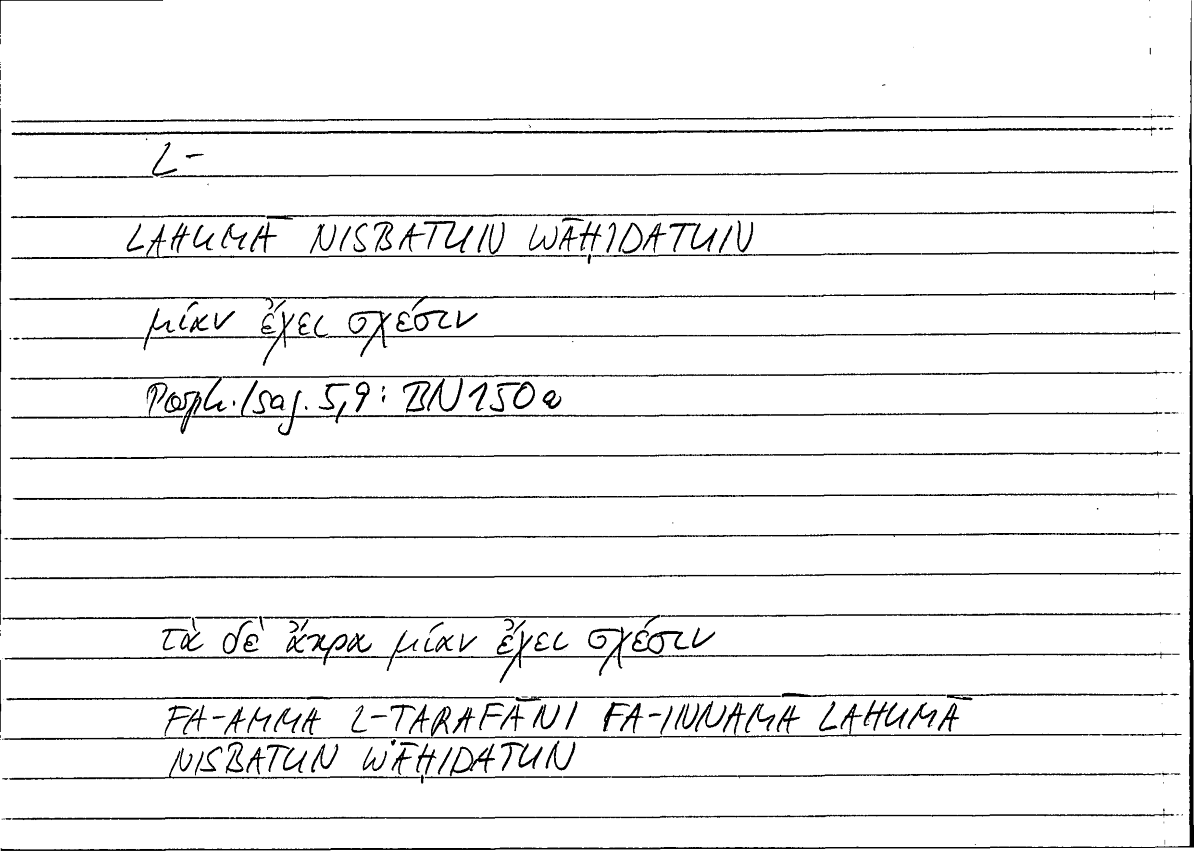 L-
LAHUMĀ NISBATUN WĀḤIDATUN
μίαν ἔχει σχέσιν
Porph. Isag. 5,9: BN 150 a
τὰ δὲ ἄκρα μίαν ἔχει σχέσιν
FA-AMMĀ L-TARAFĀNI FA-INNAMĀ LAHUMĀ
NISBATUN WĀḤIDATUN